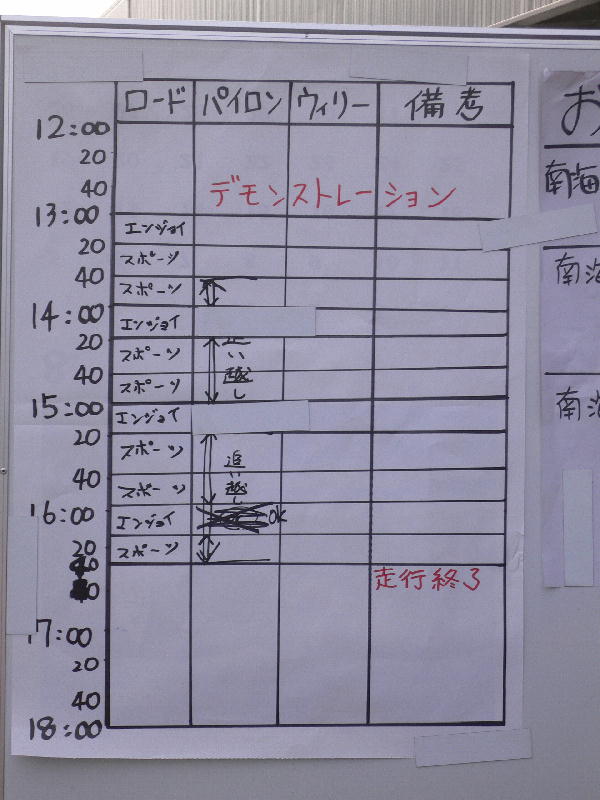 ロード パイロン ウィリー 備考
12:00
20
40 デモンストレーション
13:00 エンジョイ
20 スポーツ
40 スポーツ
14:00 エンジョイ
20 スポーツ 追い越し
40 スポーツ
15:00 エンジョイ
20 スポーツ 追い越し
40 スポーツ
16:00 エンジョイ OK
20 スポーツ
40 走行終了
17:00
20
40
18:00
お
南海
南海
南海